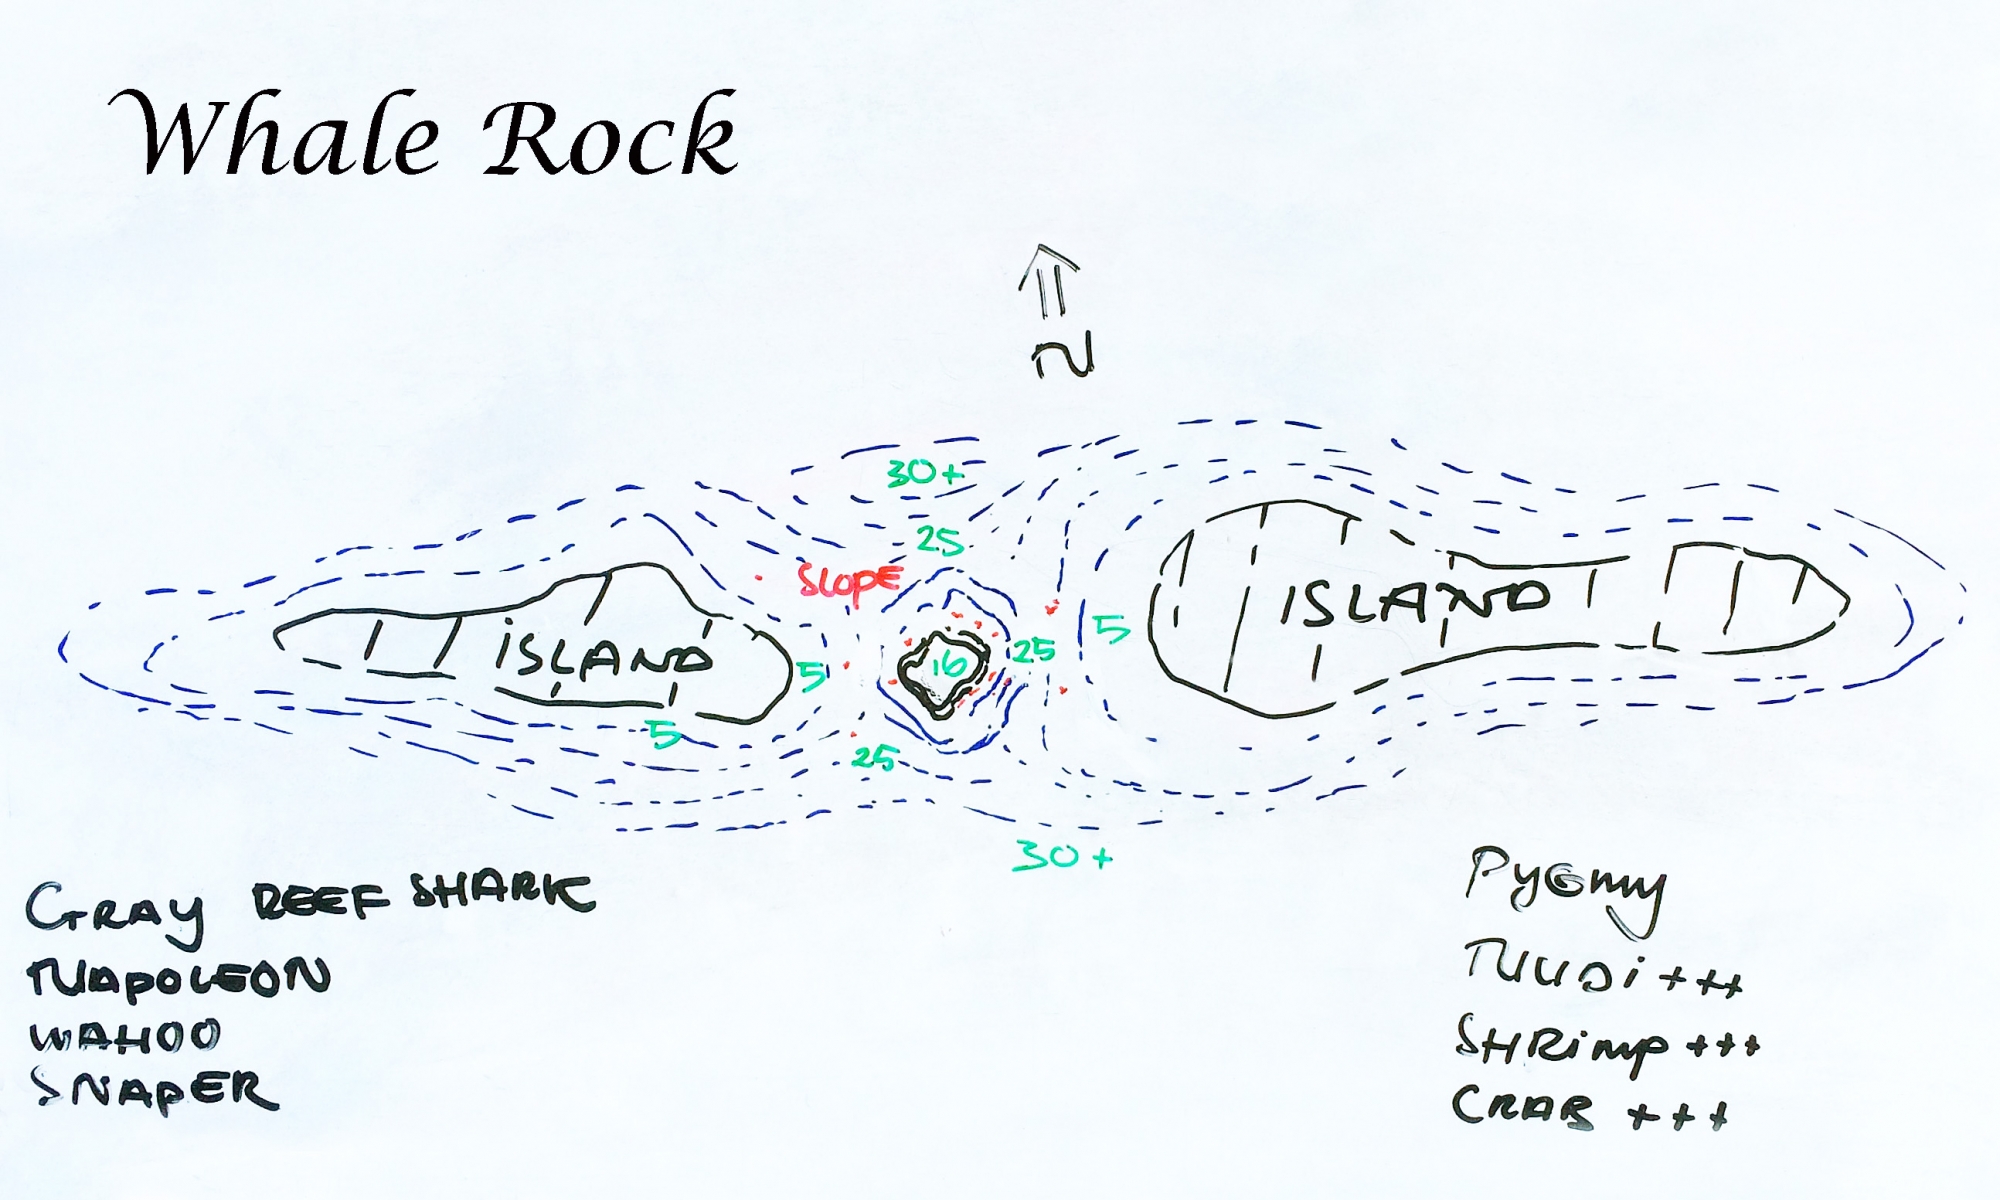 Whale Rock
N
30+
25
SLOPE
ISLAND
5
16
25
5
ISLAND
5
25
30+
GRAY REEF SHARK
NAPOLEON
WAHOO
SNAPER
PYGMY
NUDI +++
SHRIMP +++
CRAB +++